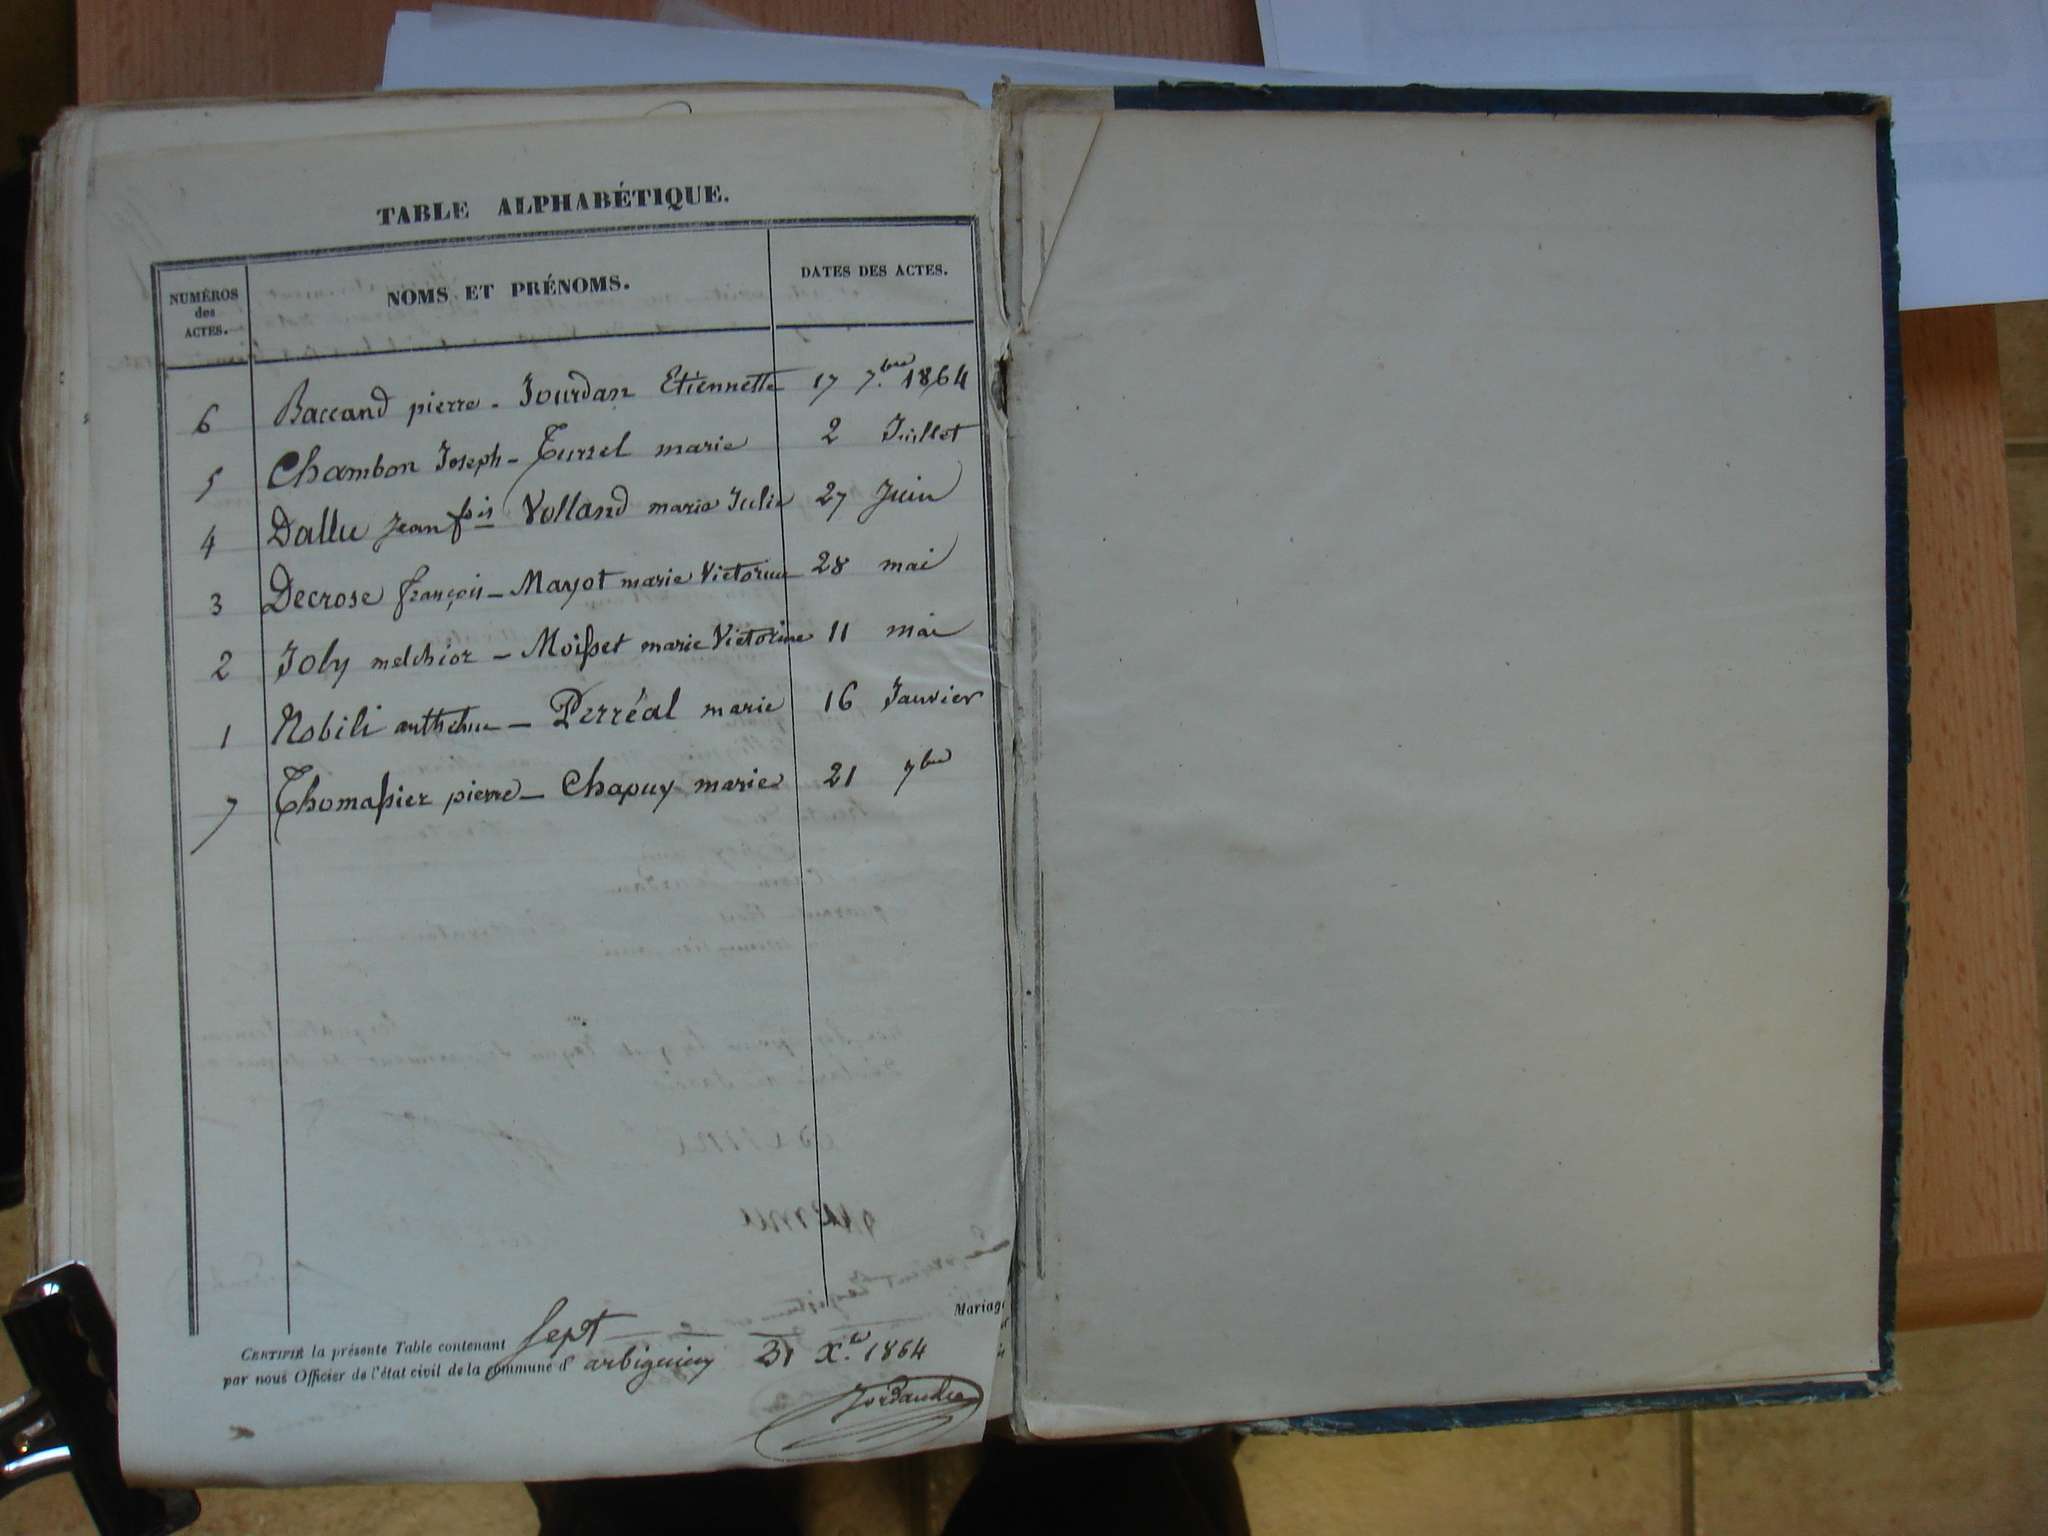 TABLE ALPHABÉTIQUE.
NUMÉROS des ACTES.
NOMS ET PRÉNOMS.
DATES DES ACTES.
6 Baccand pierre - Jourdan Etiennette 17 7.bre 1864
5 Chambon Joseph - Turrel marie 2 Juillet
4 Dallu Jean fois Volland marie Julie 27 Juin
3 Decrose françois - Mayot marie Victorine 28 mai
2 Joly melchior - Moisset marie Victorine 11 mai
1 Nobili anthelme - Perréal marie 16 Janvier
7 Thomassier pierre - Chapuy marie 21 7bre
Mariag
CERTIFIÉ la présente Table contenant sept
par nous Officier de l'état civil de la commune d' arbignieu 31 X.re 1864